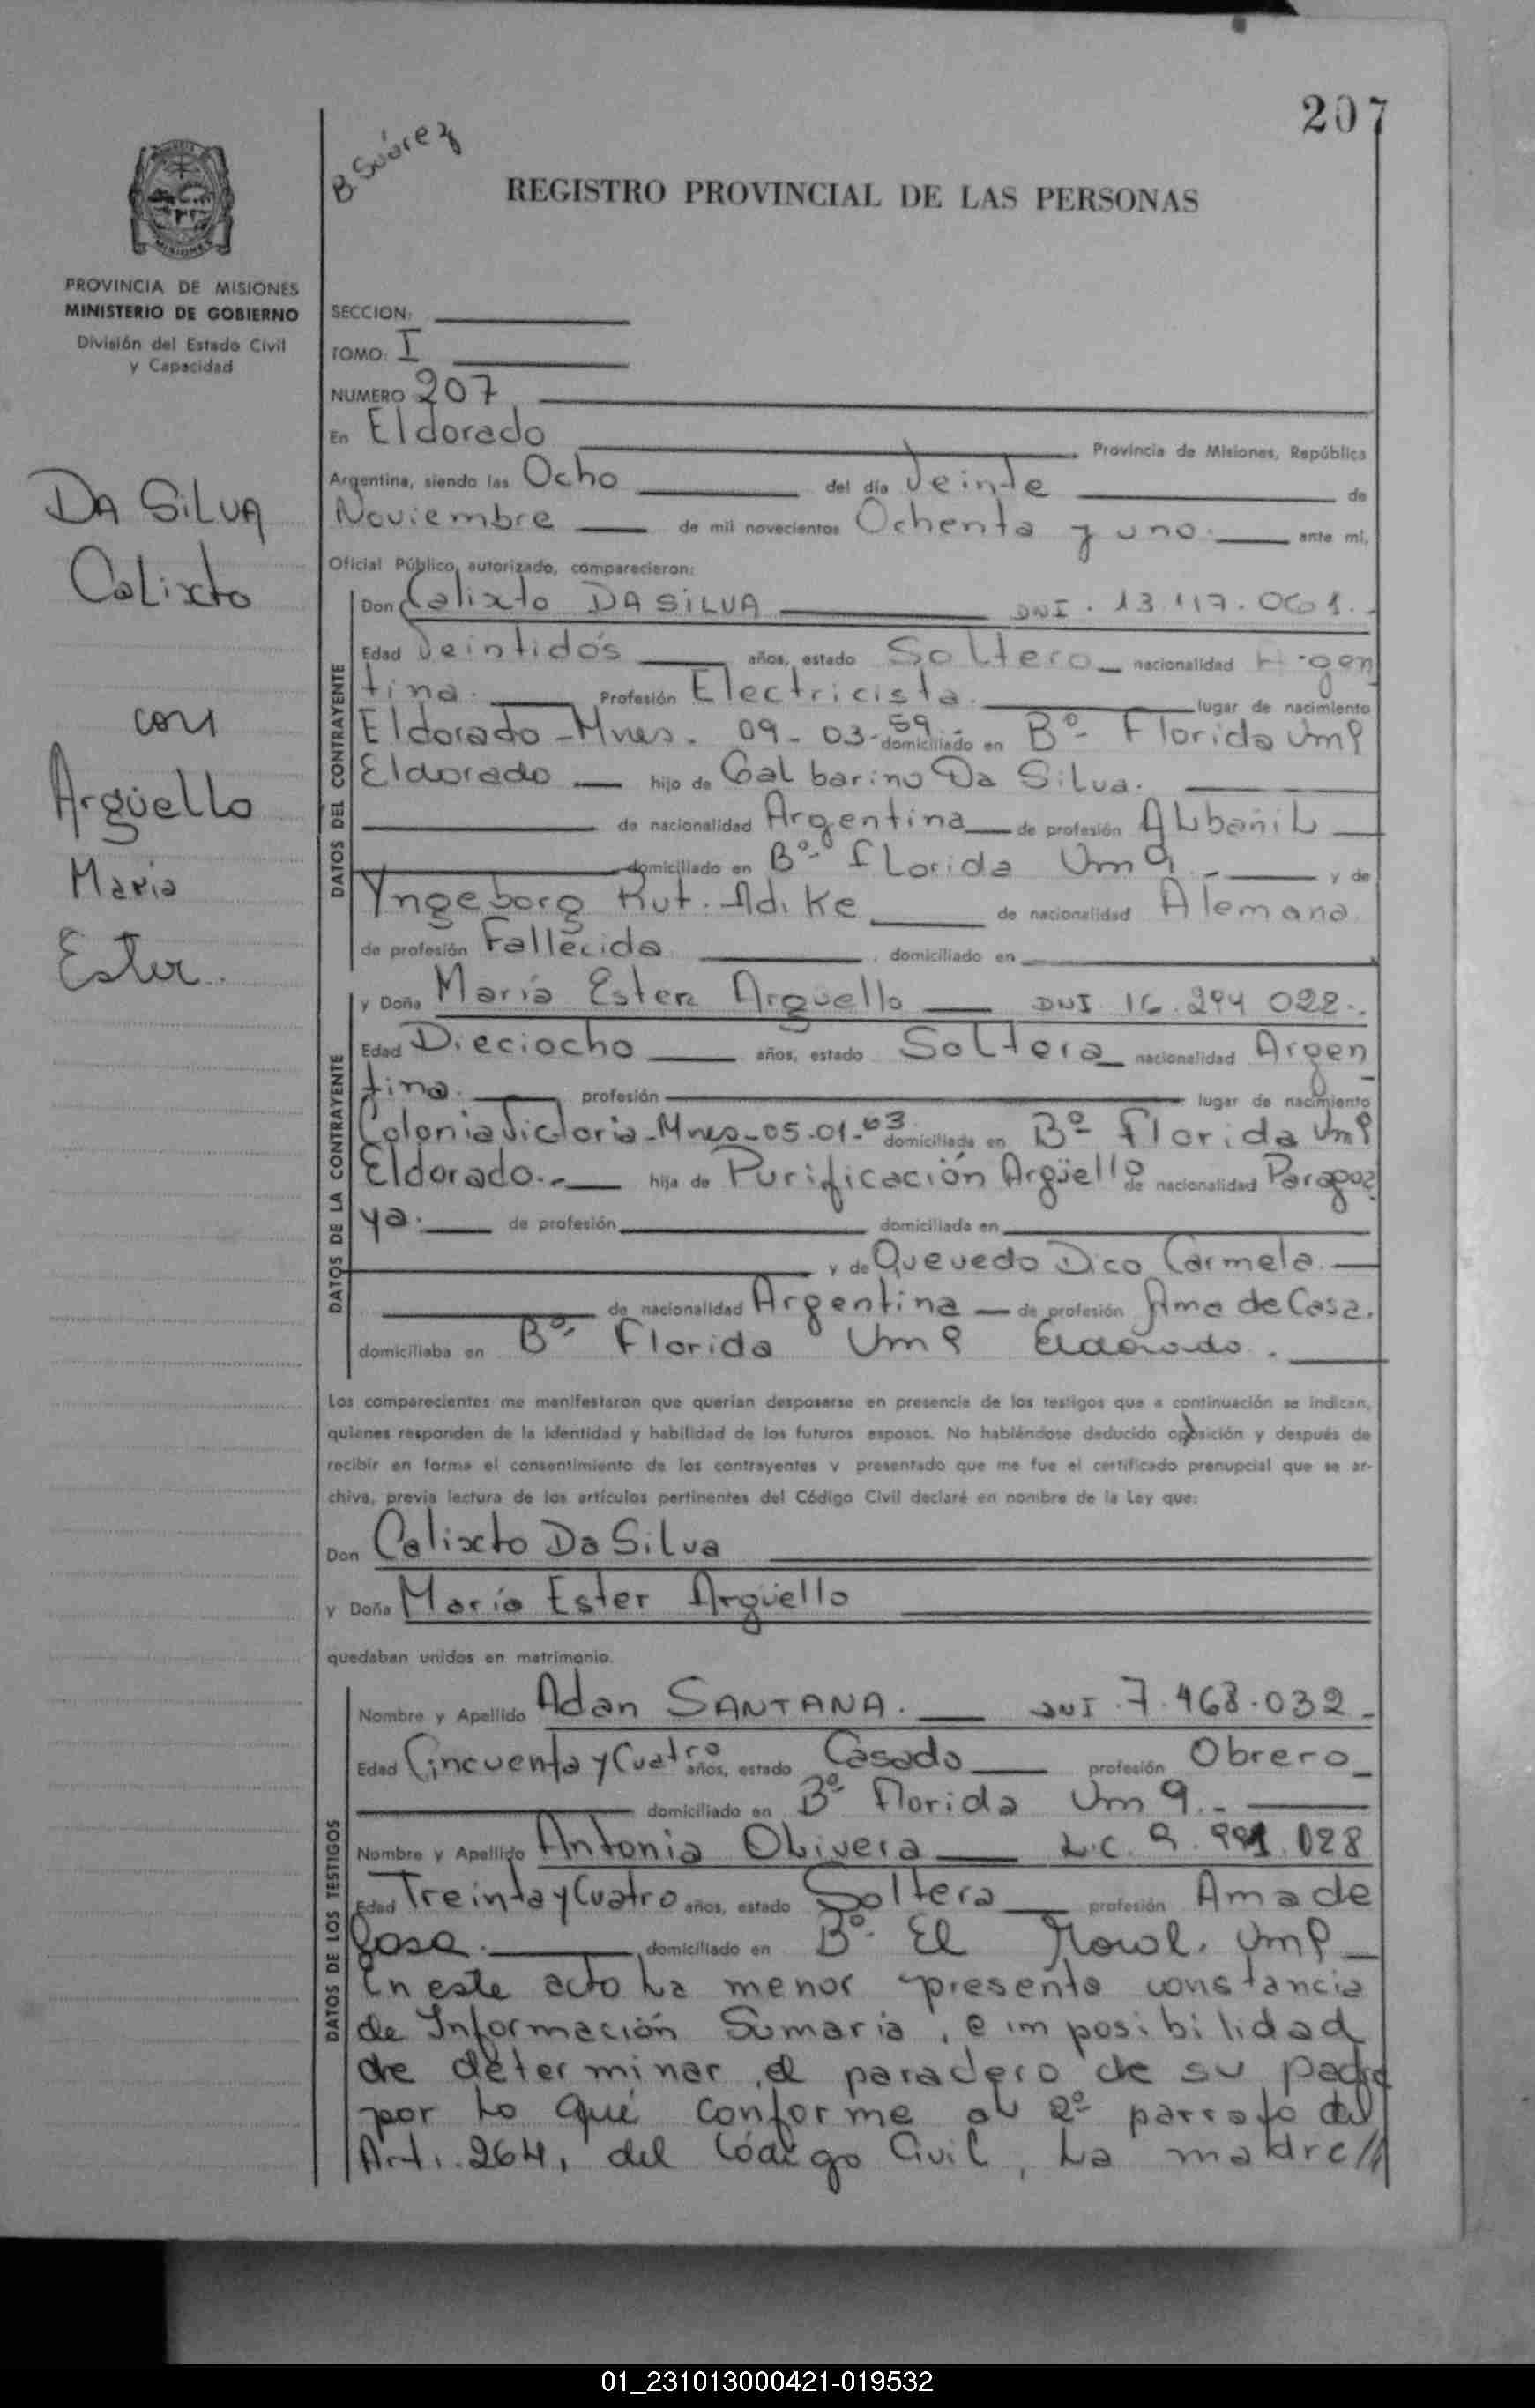 207
B. Suárez
REGISTRO PROVINCIAL DE LAS PERSONAS
MISIONES
PROVINCIA DE MISIONES
MINISTERIO DE GOBIERNO
División del Estado Civil
y Capacidad
DA SILVA
Calixto
con
Argüello
Maria
Ester.
SECCION:
TOMO: I
NUMERO 207
En Eldorado Provincia de Misiones, República
Argentina, siendo las Ocho del día Veinte de
Noviembre de mil novecientos Ochenta y uno. ante mi,
Oficial Público, autorizado, comparecieron:
DATOS DEL CONTRAYENTE
Don Calixto DA SILVA DNI. 13.117.061.-
Edad Veintidós años, estado Soltero nacionalidad Argen
tina. Profesión Electricista. lugar de nacimiento
Eldorado - Mnes. 09-03-59.- domiciliado en Bº- Florida Km9
Eldorado hijo de Galbarino Da Silva.
de nacionalidad Argentina de profesión Albañil
domiciliado en Bº- Florida Km9.- y de
Yngeborg Rut. Adike de nacionalidad Alemana
de profesión Fallecida domiciliado en
DATOS DE LA CONTRAYENTE
y Doña María Ester Arguello DNI 16.294 022.-
Edad Dieciocho años, estado Soltera nacionalidad Argen
tina. profesión lugar de nacimiento
Colonia Victoria - Mnes - 05-01-63 domiciliada en Bº- Florida Km9
Eldorado.- hija de Purificación Argüello de nacionalidad Paragua
ya. de profesión domiciliada en
y de Quevedo Dico Carmela.
de nacionalidad Argentina de profesión Ama de Casa.
domiciliaba en Bº- Florida Km9 Eldorado.
Los comparecientes me manifestaron que querían desposarse en presencia de los testigos que a continuación se indican,
quienes responden de la identidad y habilidad de los futuros esposos. No habiéndose deducido oposición y después de
recibir en forma el consentimiento de los contrayentes y presentado que me fue el certificado prenupcial que se ar-
chiva, previa lectura de los artículos pertinentes del Código Civil declaré en nombre de la Ley que:
Don Calixto Da Silva
y Doña María Ester Argüello
quedaban unidos en matrimonio.
DATOS DE LOS TESTIGOS
Nombre y Apellido Adan SANTANA. DNI. 7.468.032
Edad Cincuenta y Cuatro años, estado Casado profesión Obrero
domiciliado en Bº Florida Km 9.-
Nombre y Apellido Antonia Olivera L.C. 9.991.028
Edad Treinta y Cuatro años, estado Soltera profesión Ama de
Casa. domiciliado en Bº- El Km9
En este acto la menor presenta constancia
de Información Sumaria, e imposibilidad
de determinar, el paradero de su padre
por lo que conforme al 2º parrafo del
Art. 264, del Código Civil, la madre//
01_231013000421-019532